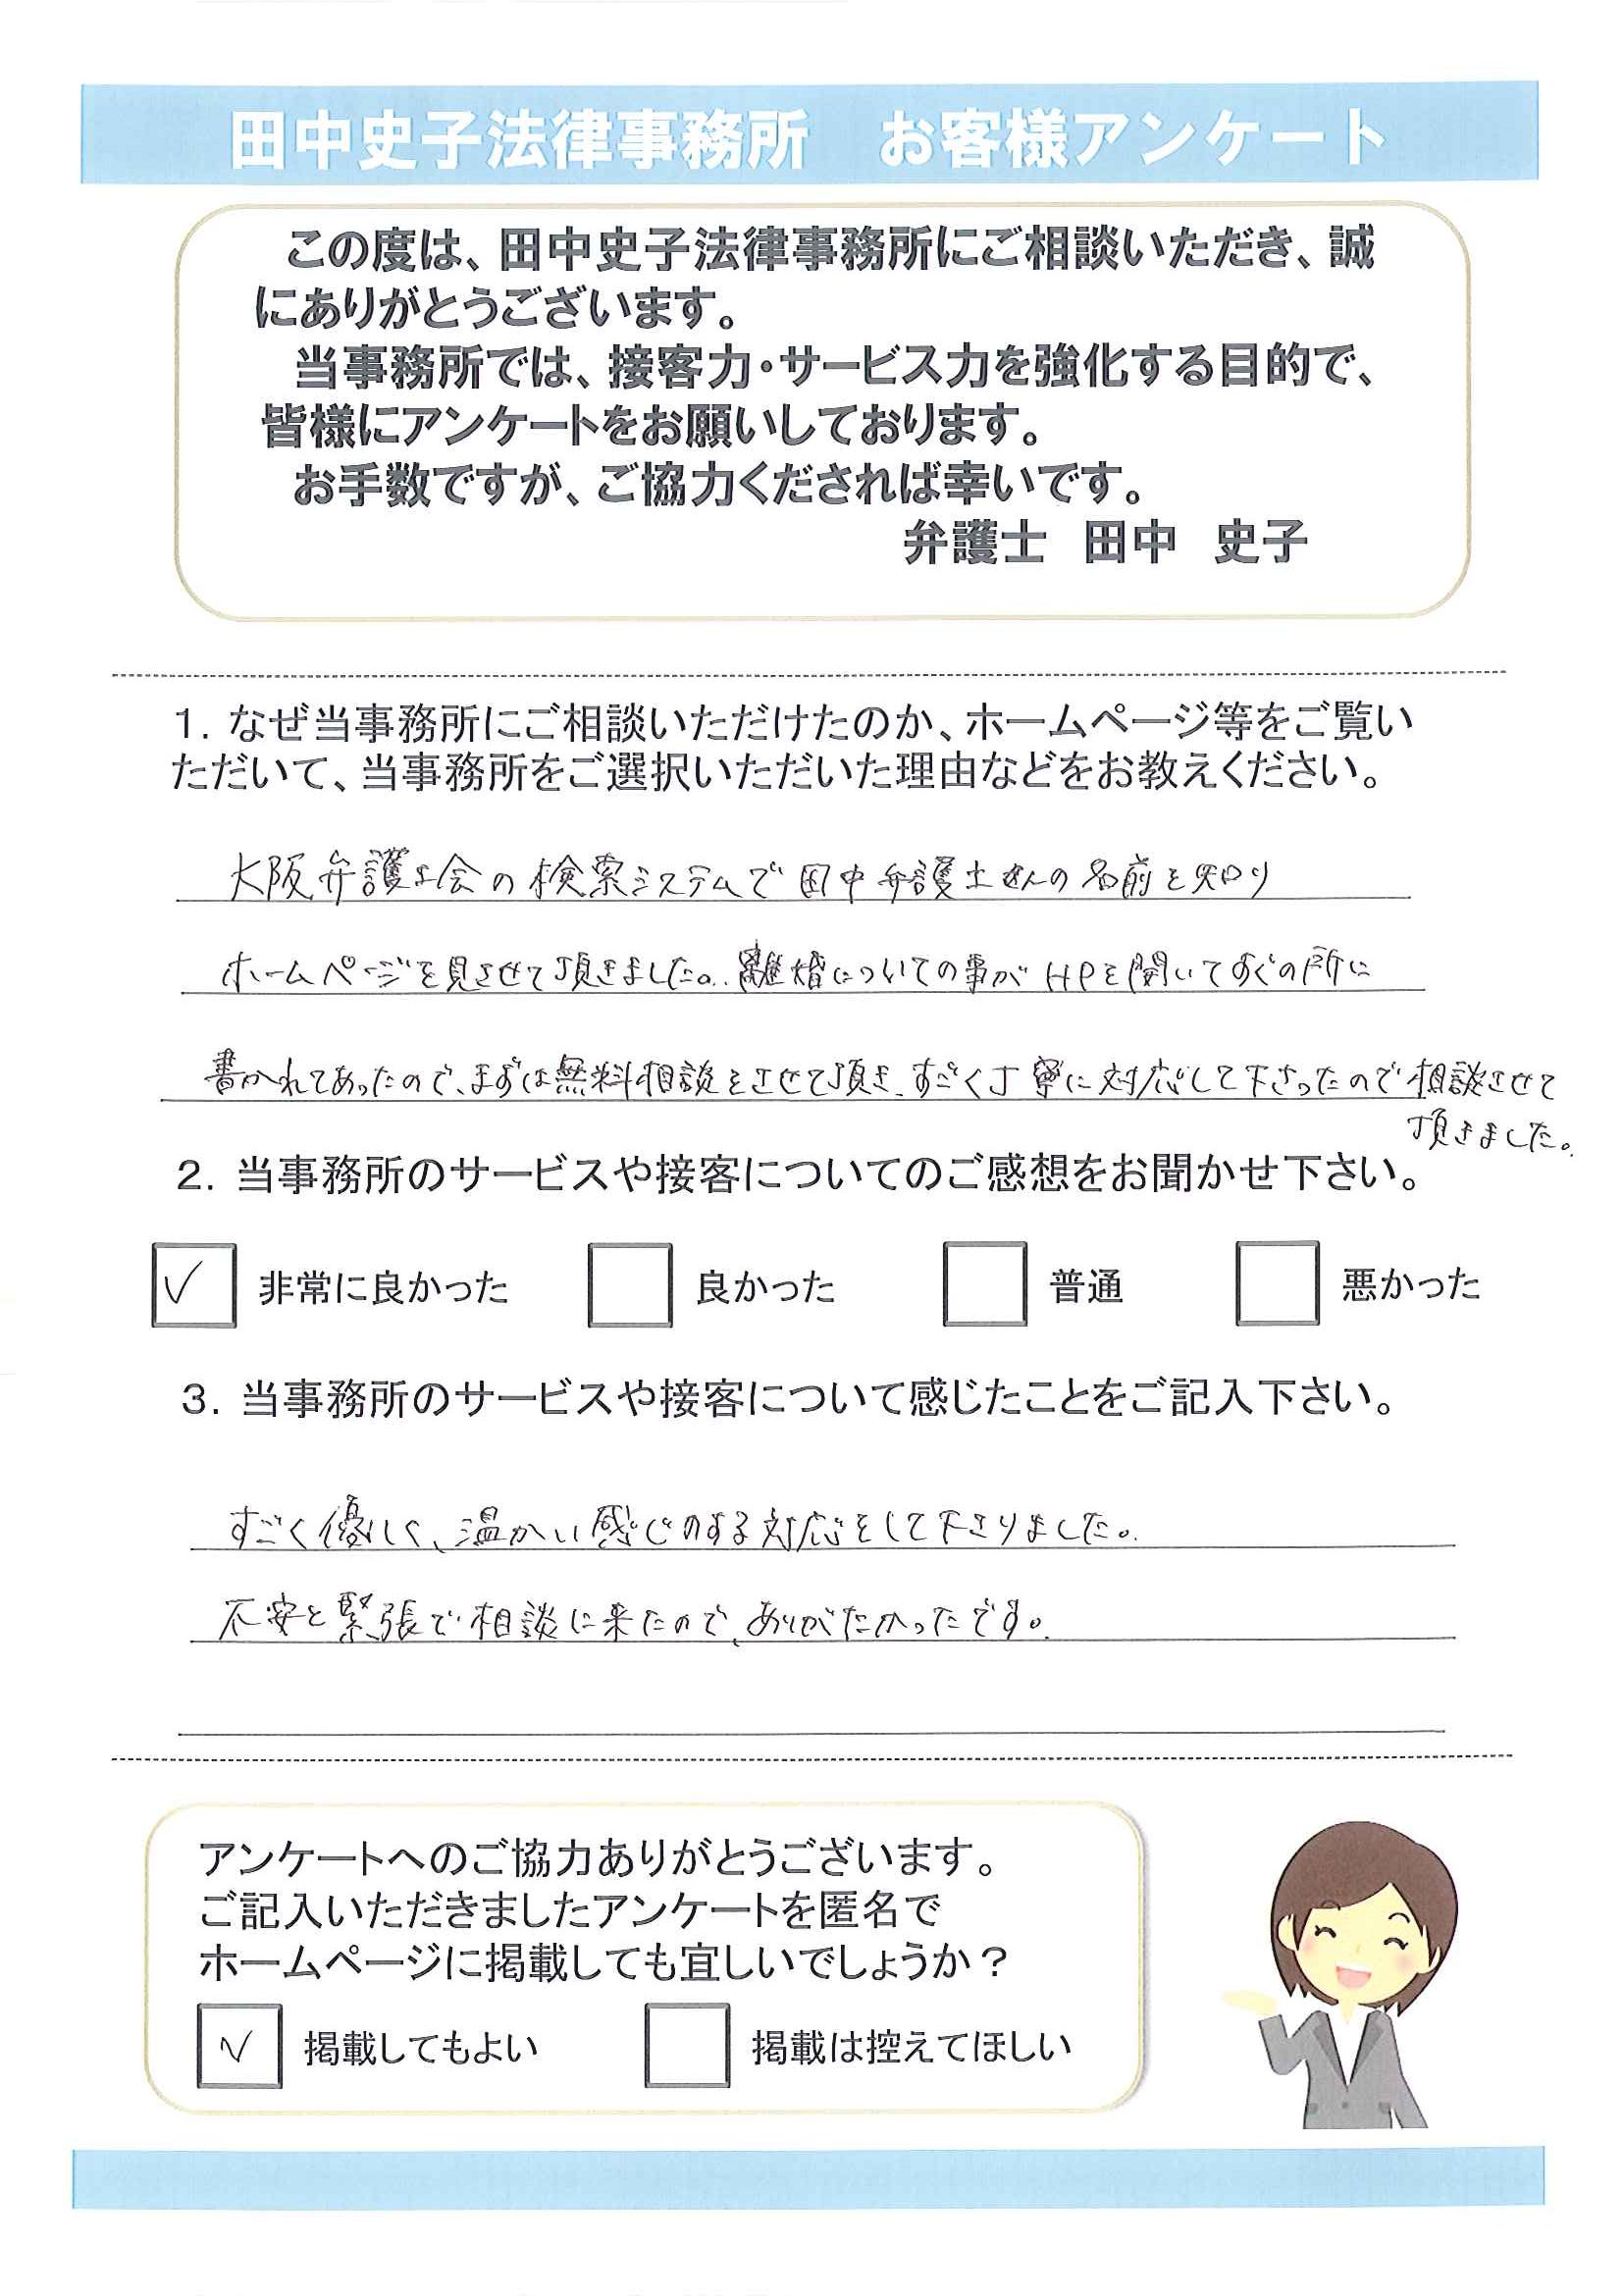 田中史子法律事務所　お客様アンケート
この度は、田中史子法律事務所にご相談いただき、誠
にありがとうございます。
当事務所では、接客力・サービス力を強化する目的で、
皆様にアンケートをお願いしております。
お手数ですが、ご協力くだされば幸いです。
弁護士　田中　史子
1. なぜ当事務所にご相談いただけたのか、ホームページ等をご覧い
ただいて、当事務所をご選択いただいた理由などをお教えください。
大阪弁護士会の検索システムで田中弁護士さんの名前を知り
ホームページを見させて頂きました。離婚についての事がHPを開いてすぐの所に
書かれてあったので、まずは無料相談をさせて頂き、すごく丁寧に対応して下さったので相談させて
頂きました。
2. 当事務所のサービスや接客についてのご感想をお聞かせ下さい。
✓ 非常に良かった　良かった　普通　悪かった
3. 当事務所のサービスや接客について感じたことをご記入下さい。
すごく優しく、温かい感じのする対応をして下さりました。
不安と緊張で相談に来たので、ありがたかったです。
アンケートへのご協力ありがとうございます。
ご記入いただきましたアンケートを匿名で
ホームページに掲載しても宜しいでしょうか？
✓ 掲載してもよい　掲載は控えてほしい